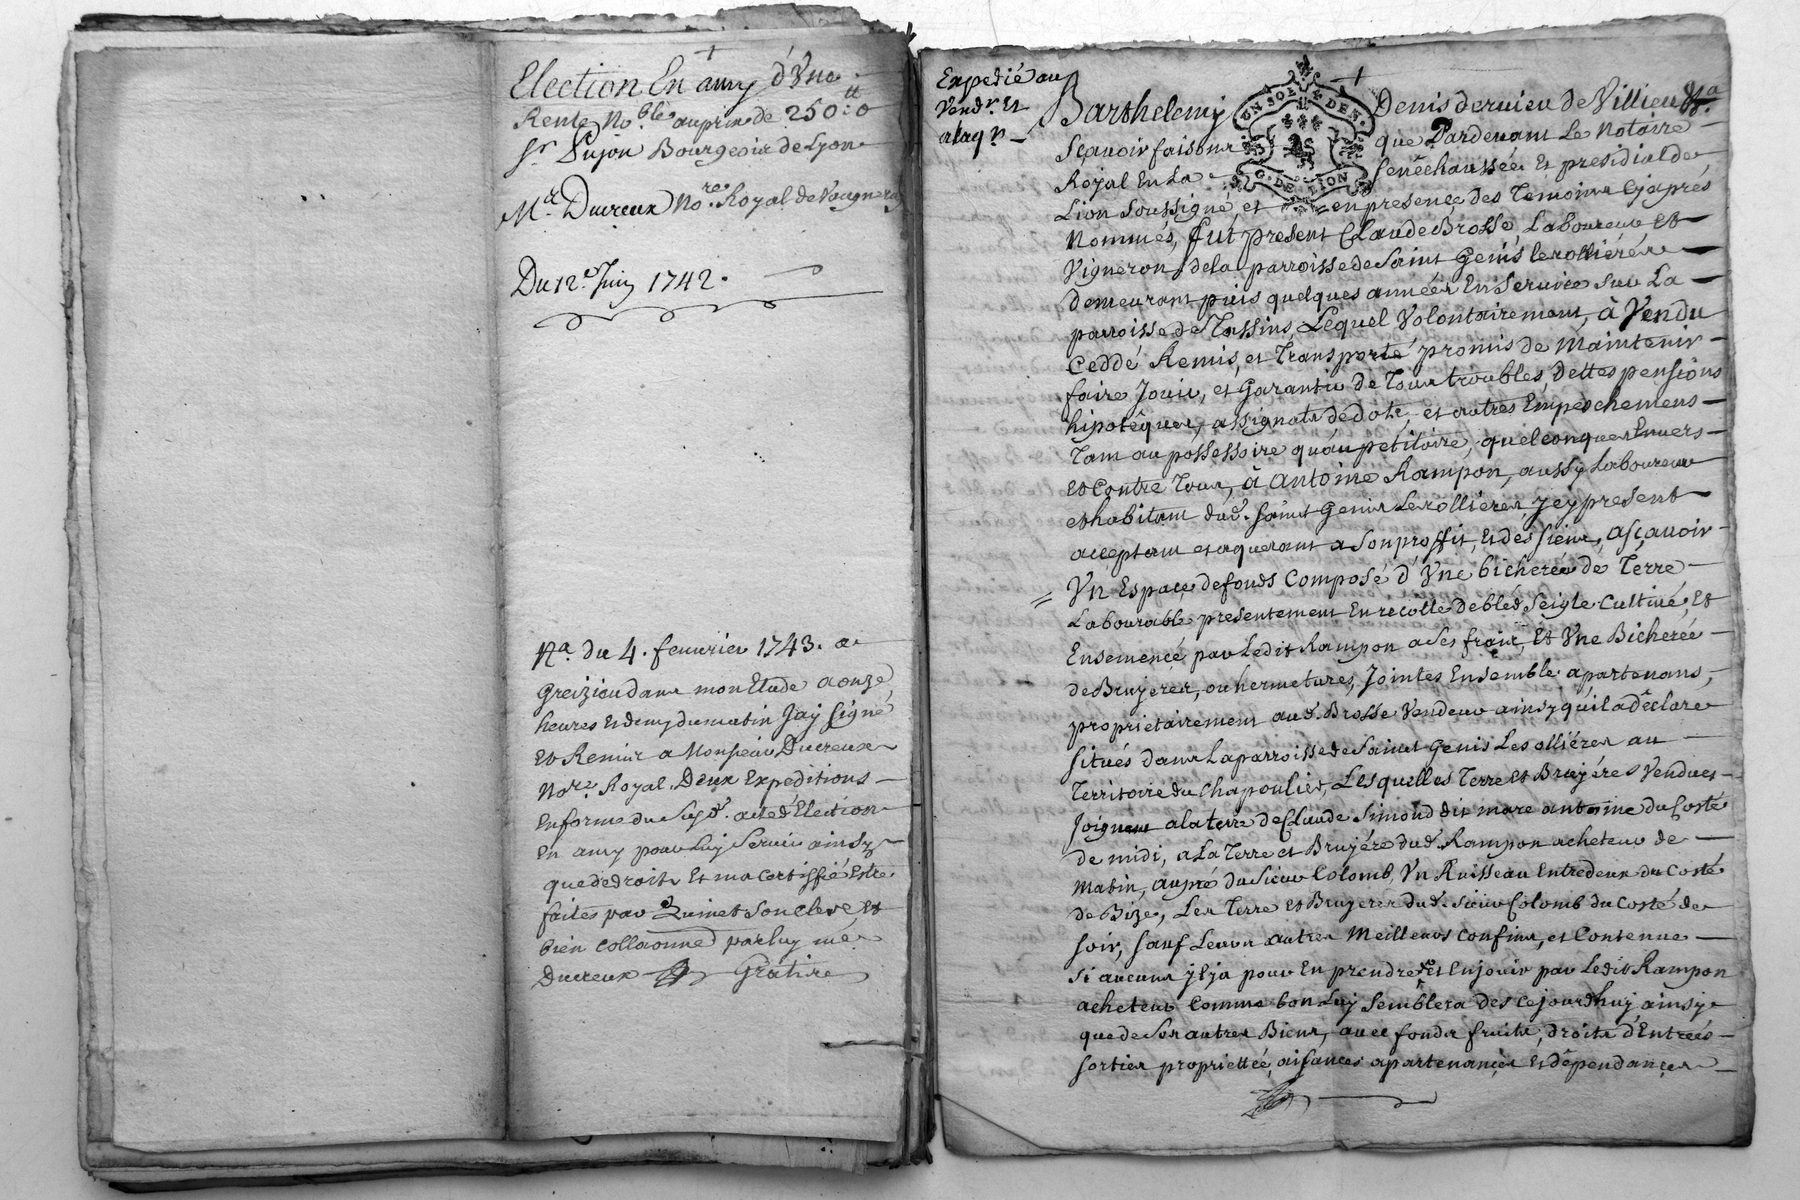 Election En amy d'Vne
Rente No.ble au prix de 250.tt 0
Sr. Pujon Bourgeois de Lyon
Me. Ducreux No.re Royal de Vaugneray
Du 12.e Juin 1742.
Na. du 4. feuurier 1743. a
Greizieu dans mon Etude a onze
heures et demy du matin Jay signé
et Remis a Monsieur Ducreux
No.re Royal Deux Expeditions
en forme du Susd. acte d'Election
en amy pour luy Seruir ainsy
que de droit et ma certiffié estre
faites par Quinet son clerc, et
bien collaonné par luy me
Ducreux Gratire
Expedié au
Vendr. Et
alaq.n
Barthelemy Denis deruieu de Villieu Na
UN SOL DEN.
G. DE LION
Sçauoir faisons que Pardeuant Le Notaire
Royal En La Senêchaussée Et presidial de
Lion Soussigné, et en presence des Temoins Cyaprés
Nommés, fut present Claude Brosse Laboureur et
Vigneron de la parroisse de Saint Genis lerolliérére
demeurant puis quelques années En seruice Sur La
parroisse de Tassins, Lequel Volontairement, à Vendu
Ceddé Remis, et Transporté promis de Maintenir
faire Jouir, et Garantir de Tous troubles, dettes pensions
hipotêques, assignats de dote et autres Empeschemens
Tant au possessoire qu'au petitoire, quelconques Enuers
Et Contre Tous, à Antoine Rampon, aussy Laboureur
et habitant dud. Saint Genis Lerolliéres, jcy present
acceptant et aquerant a Son proffit, Et des siens, asçauoir
Vn Espace de fonds Composé d'Vne bicherée de Terre
Labourable presentement En recolte de bled Seigle Cultiué, Et
Ensemencé par Ledit Rampon a Ses frais, Et Vne Bicherée
de Bruyeres, ou hermetures, Jointes Ensemble apartenans,
proprietairement aud. Brosse Vendeur ainsy qu'il a dêclare
Situés dans La parroisse de Saint Genis Les olliéres au
Territoire du Chapoulier, Lesquelles Terre Et Bruyéres Vendues
Joignent a la terre de Claude Simond dit mare antoine du Costé
de midi, a La Terre et Bruyére dud. Rampon acheteur de
Matin, au pré du Sieur Colomb, Vn Ruisseau Entredeux du Costé
de Bize, Les Terre et Bruyeres dud. sieur Colomb du Costé de
soir, Sauf Leurs autres Meilleurs Confins, et Contenue
Si aucuns y'à pour En prendre et En jouir par Ledit Rampon
acheteur Comme bon Luy Semblera des cejourdhuy, ainsy
que de Son autres Biens, auec fonds fruits, droits d'Entrées
Sorties propriettée, aisances apartenances Et dépendances